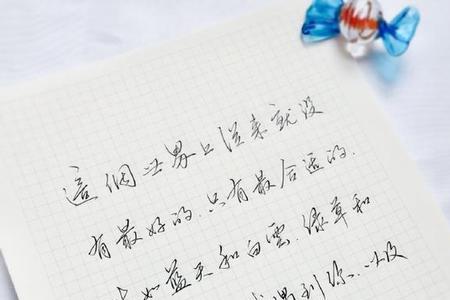 這個世界上從來就沒
有最好的.只有最合适的.
比如蓝天和白雲.绿草和
遇到你...以及